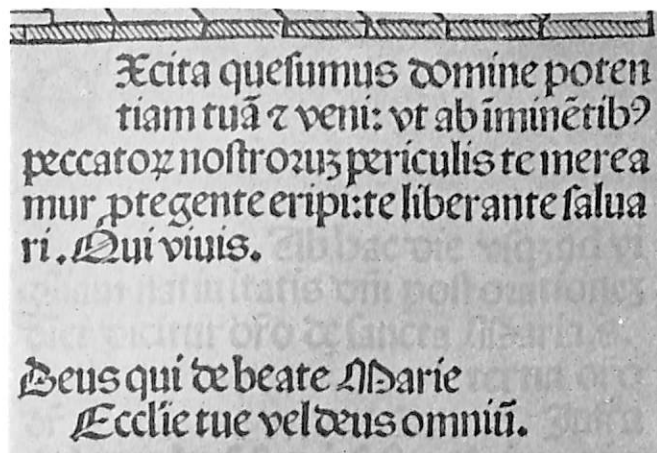 Xcita queſumus domine poten
tiam tuā ⁊ veni: vt ab īminētibꝰ
peccatoꝝ noſtroꝛuꝫ periculis te merea
mur ꝓtegente eripi: te liberante ſalua
ri. Qui viuis.
Deus qui de beate Marie
Eccl̄ie tue vel deus omniū.